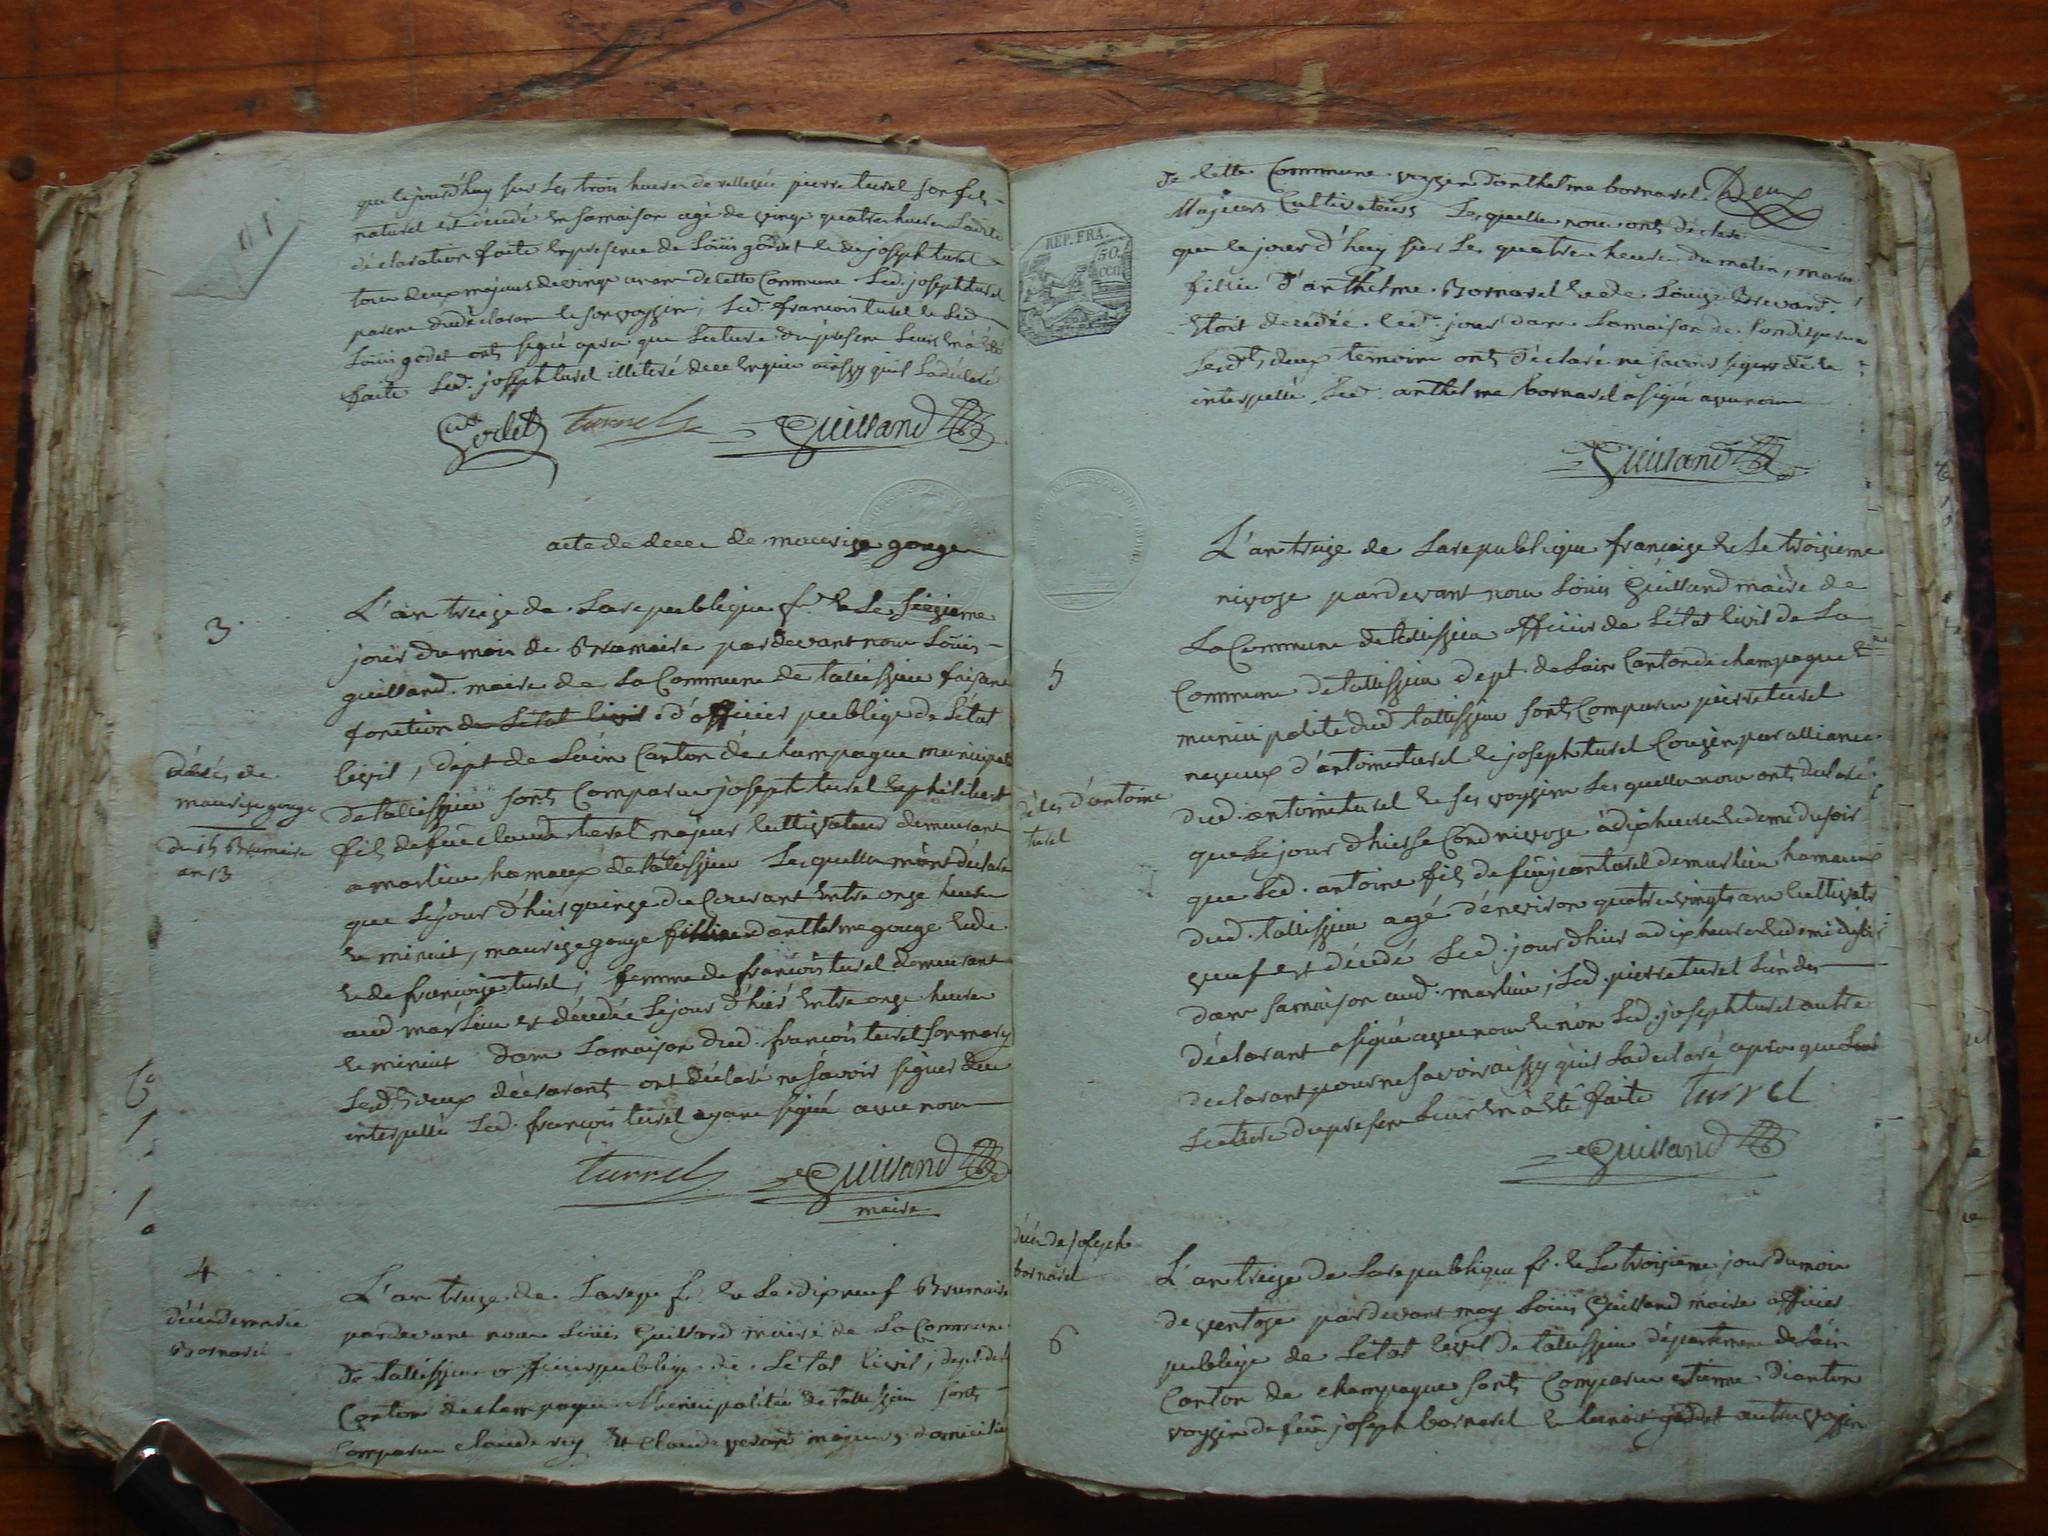 que lejourd'huy sur les trois heures de rellevée pierre turel son fils
naturel est décédé en samaison agé de vingt quatre heures Ladite
déclaration faite en presence de Loüis godet et de joseph turel
tous deux majeurs de vingt un ans de cette Commune Led. joseph turel
parent dudéclarant et son voyzin, Led. francois turel et Led.
Loüis godet onts signé apres que Lecture du présent Leurs en à été
faite Led. joseph turel illiteré de ce enquis ainssy quil La déclaré
Godet turrel Guilland
acte de deces de maurize gouge
3
L'an treize de Larepublique f.se et Le seizieme
jour du mois de Brumaire pardevant nous Loüis
guilland maire de La Commune de talissieu faisant
fonction de Létat livil d'officier publique de Létat
livil, dépt de Láin Canton de champagne municipal
de talissieu sonts Comparu joseph turel et philibert
fils de feu claude turel majeur Cultivateur demeurant
a marlieu hamaux de talissieu Lesquelles mont déclaré
que Lejour d'hier quinze du Courant entre onze heures
et minuit, maurize gouge fillie d'anthelme gouge et de
et de françoize turel, femme de francois turel demeurant
aud. marlieu est décédée Lejour d'hier entre onze heures
et minuit dans Lamaison dud. francois turel son mary
Lesd.ts deux déclarants ont déclaré ne savoir signer de ce
interpellé Led. françois turel ayant signé avec nous
turrel Guilland
maire
décés de
maurize gouge
du 15 Brumaire
an 13
4
décés de marie
Bornarel
L'an treize de Larep. f. et Le dixneuf Brumaire
pardevant nous Loüis Guilland maire de La Commune
de talissieu officier publique de Létat livil, dept. de L
Canton de champagne Municipalitée de talissieu sonts
Comparu claude rey et claude majeurs domicilié
de Cette Commune voyzin d'anthelme bornarel Deux
Majeurs Cultivateurs Lesquelles nous onts déclaré
que le jour d'huy sur Les quatre heures du matin, marie
fillie d'anthelme Bornarel et de Loüize Brevard
étoit decedée led. jour dans Lamaison de sondit pere
Lesdts deux temoins onts déclaré ne savoir signer de ce
interpellé Led. anthelme bornarel a signé avec nous
Guilland
REP. FRA.
50 cen
5
décés d'antoine
turel
L'an treize de Larepublique françaize et Le troizieme
nivoze pardevant nous Loüis Guilland maire de
La Commune de talissieu officier de Létat livil de La
Commune de talissieu dept. de Lain Canton de champagne
municipalité dud. talissieu sonts Comparu pierre turel
neveux d'antoine turel et joseph turel Cousin par alliance
dud. antoine turel et ses voyzins Lesquelles nous onts declaré
que Lejour d'hier Second nivoze à dix heures et demi du soir
que Led. antoine fils de feu jean turel de marlieu hamaux
dud. talissieu agé d'environ quatre vingts ans Cultivateur
veuf est décédé Led. jour d'hier a dix heures et demi du soir
dans samaison aud. marlieu, Led. pierre turel Lun des
déclarant a signé avec nous et non Led. joseph turel autre
declarant pour ne savoir ainssy quil La declaré apres que
Lecture du present Leurs en à été faite turrel
Guilland
décés de joseph
bornarel
6
L'an treize de Larepublique fr. et Le troizieme jour du mois
de ventoze pardevant moy Loüis Guilland maire officier
publiqe de Létat livil de talissieu département de Lain
Canton de champagne sonts Comparu etienne d'anton
voyzin de feu joseph bornarel et benoit goddet autre voyzin